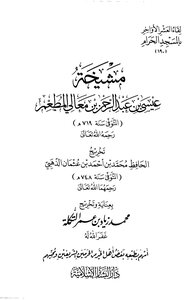 لقاء العشر الأواخر
بالمسجد الحرام
(١٩٠)
مشيخة
عيسى بن عبد الرحمن بن معالي المطعم
(المتوفى سنة ٧١٩ هـ)
رحمه الله تعالى
تخريج
الحافظ محمد بن أحمد بن عثمان الذهبي
(المتوفى سنة ٧٤٨ هـ)
رحمهما الله تعالى
بعناية وتخريج
محمد زياد بن عمر التكلة
غفر الله له
أسهم بطبعه بعض أهل الخير من الحرمين الشريفين ومحبيهم
دار البشائر الإسلامية